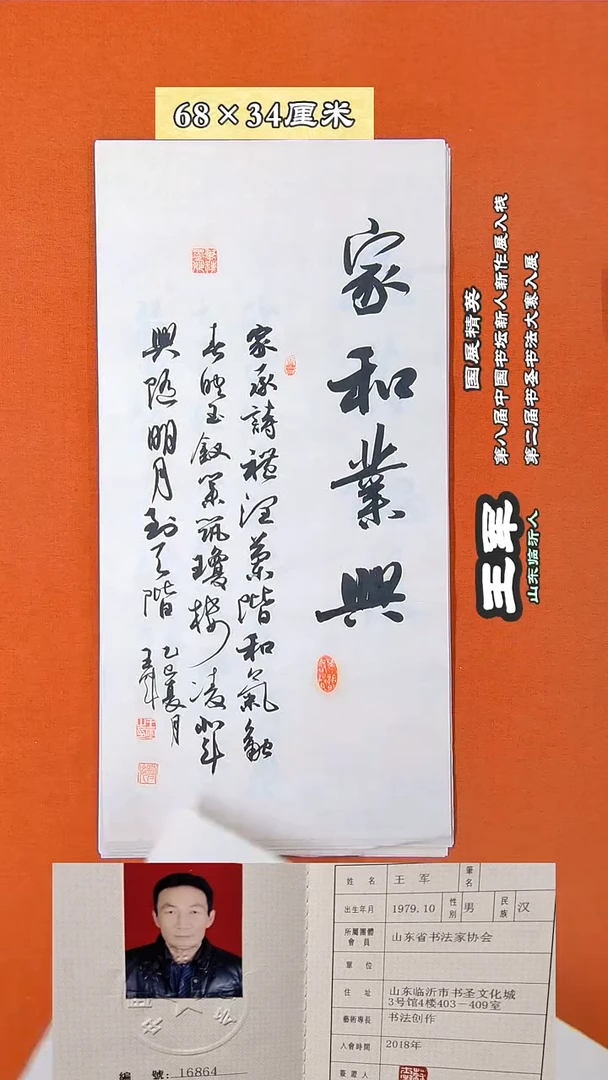 68×34厘米
家和業興
家承詩禮潤蘭階和氣融
春映玉釵業筑瓊樓凌北斗
興隨明月到天階
乙巳夏月
王军
国展精英
第八届中国书坛新人新作展入栈
第二届书圣书法大赛入展
王军
山东临沂人
編 號: 16864
姓 名 王 军 筆名
出生年月 1979.10 性別 男 民族 汉
所屬團體會員 山东省书法家协会
單 位
住 址 山东临沂市书圣文化城
3号馆4楼403－409室
藝術專長 书法创作
入會時間 2018年
簽證人